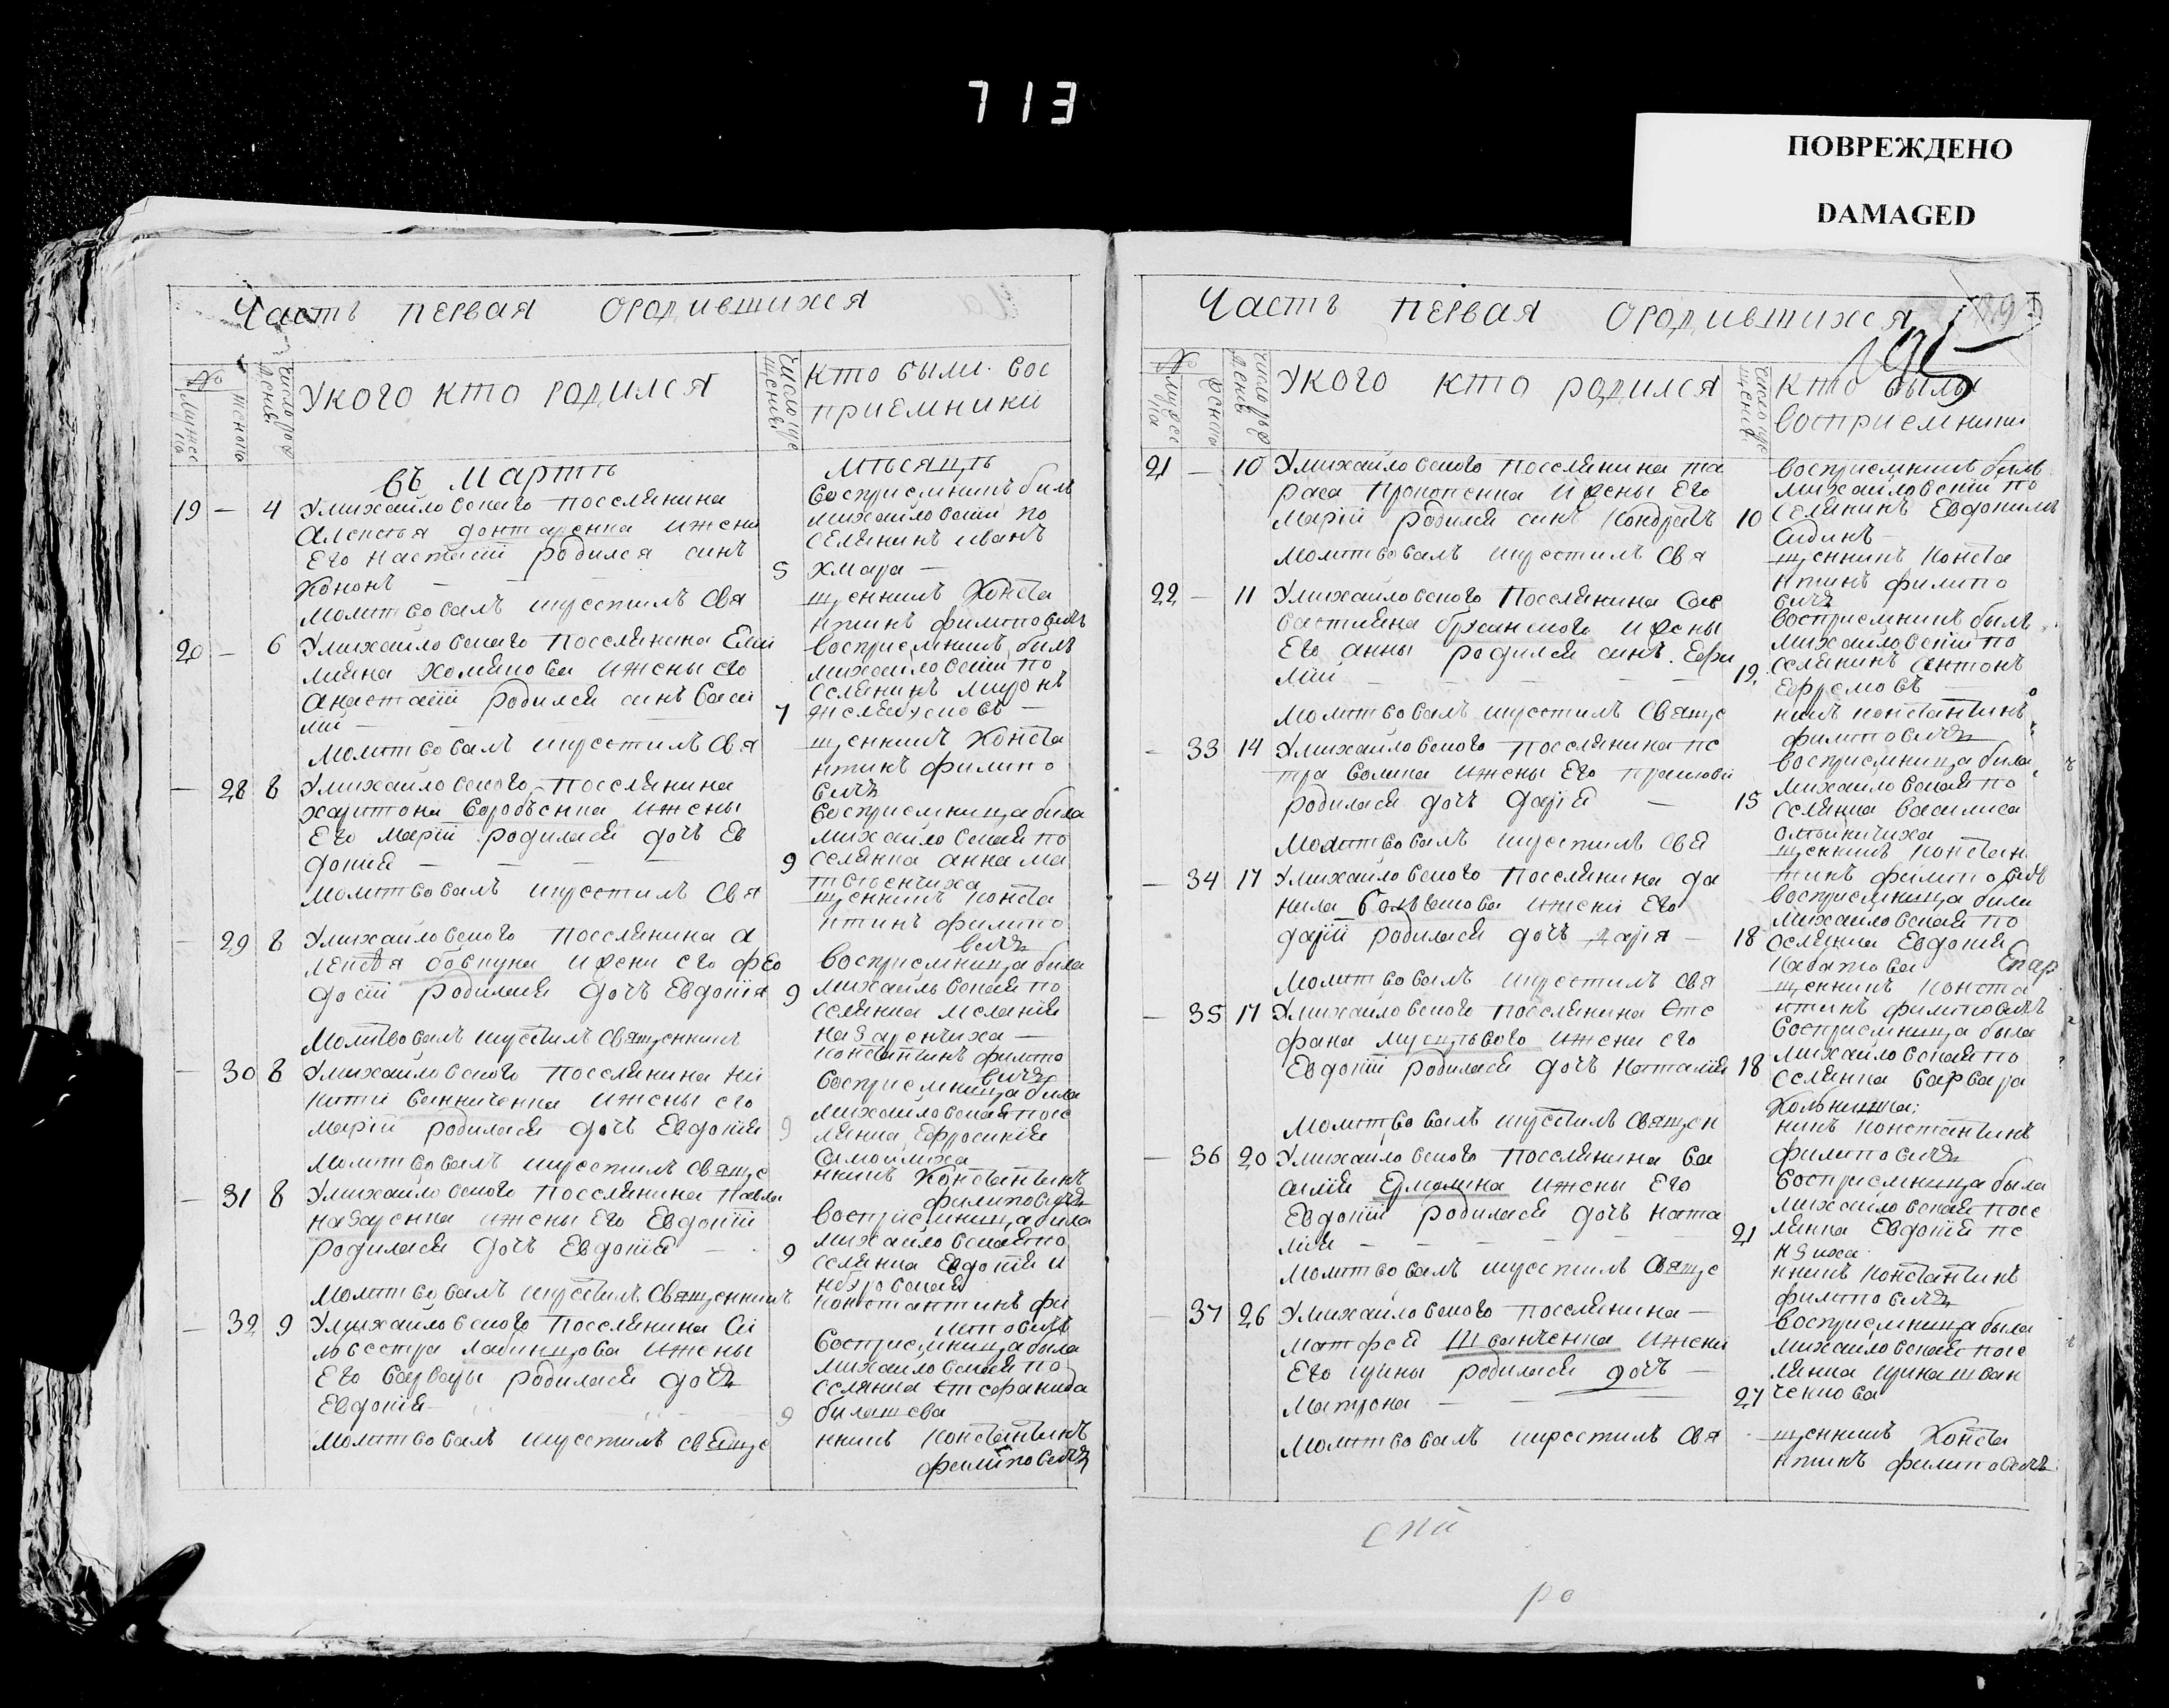 713
ПОВРЕЖДЕНО
DAMAGED
Часть первая ородившихся
№
У кого кто родился
кто были вос
приемники
въ Мартѣ
мѣсяцѣ
19 — 4 Умихайловского поселянина
Алексѣя ижени
Его Настасіи родился синъ
Кононъ — 5
Молитвовалъ икрестилъ Свя
восприемникъ билъ
михайловскій по
селянинъ иванъ
хмара —
щенникъ Конста
нтинъ филиповичъ
20 — 6 Умихайловского Поселянина Еми
лияна Хомякова ижены его
Анастасіи родился синъ Васи
лий — 7
Молитвовалъ икрестилъ Свя
восприемникъ билъ
михайловскій по
селянинъ миронъ
щенникъ Конста
нтинъ филипо
вичъ
— 28 8 Умихайловского Поселянина
харитона Воробъенка ижены
Его Маріи родилася дочь Ев
докия — 9
Молитвовалъ икрестилъ Свя
восприемница била
михайловская по
селянка анна ма
щенникъ Конста
нтинъ филипо
вичъ
— 29 8 Умихайловского Поселянина а
лексѣя бовкуна ижени его фео
досіи родилася дочъ Евдокия 9
Молитвовалъ икрестилъ Священникъ
восприемница била
михайловская по
селянка мелания
назаренчиха —
Константинъ филипо
вичъ
— 30 8 Умихайловского Поселянина ни
кити Винниченка ижены его
Маріи родилася дочъ Евдокия 9
Молитвовалъ икрестилъ Свяще
восприемница била
михайловская посе
лянка Ефросиния
Самойлиха
нникъ Константинъ
филиповичъ
— 31 8 Умихайловского Поселянина Павла
назаренка ижены Его Евдокіи
родилася дочъ Евдокия — 9
Молитвовалъ икрестилъ Священникъ
восприемница била
михайловская по
селянка Евдокия
Константинъ фи
липовичъ
— 32 9 Умихайловского Поселянина Си
львестра Лабинцова ижены
Его Варвары родилася дочъ
Евдокия 9
Молитвовалъ икрестилъ Свяще
восприемница была
михайловская по
селянка Стефанида
билашева
нникъ Константинъ
филиповичъ
Часть первая ородившихся
№
У кого кто родился
кто были
восприемники
21 — 10 Умихайловского поселянина та
раса Прокопенка ижены Его
Маріи родился синъ Кондратъ 10
Молитвовалъ икрестилъ Свя
восприемникъ билъ
михайловскій по
селянинъ Евдокимъ
Сидинъ —
щенникъ Конста
нтинъ филипо
вичъ
22 — 11 Умихайловского Поселянина Сев
астияна ижены
Его анны родился синъ Ефи
мий — 12
Молитвовалъ икрестилъ Свяще
восприемникъ билъ
михайловскій по
селянинъ антонъ
Ефремовъ
никъ константинъ
филиповичъ
— 33 14 Умихайловского Поселянина пе
тра Волика ижены Его
родилася дочъ Дарія — 15
Молитвовалъ икрестилъ Свя
восприемница била
михайловская по
селянка василиса
щенникъ Констан
тинъ филиповичъ
— 34 17 Умихайловского Поселянина да
нила ижени Его
даріи родилася дочъ дарія — 18
Молитвовалъ икрестилъ Свя
восприемница била
михайловская по
селянка Евдокия
щенникъ Конста
нтинъ филиповичъ
— 35 17 Умихайловского Поселянина Сте
фана ижени его
Евдокіи родилася дочъ Наталия 18
Молитвовалъ икрестилъ Священ
восприемница была
михайловская по
селянка Варвара
никъ Константинъ
филиповичъ
— 36 20 Умихайловского Поселянина Ва
силия Ермолина ижены Его
Евдокіи родилася дочъ ната
лия — 21
Молитвовалъ икрестилъ Свяще
восприемница была
михайловская посе
лянка Евдокия пе
нзиха
нникъ Константинъ
филиповичъ
— 37 26 Умихайловского поселянина —
матфея Шванченка ижени
Его ирины родилася дочъ —
Матрона — 27
Молитвовалъ икрестилъ Свя
восприемница была
михайловская посе
лянка ирина шван
ченкова
щенникъ Конста
нтинъ филиповичъ
ро